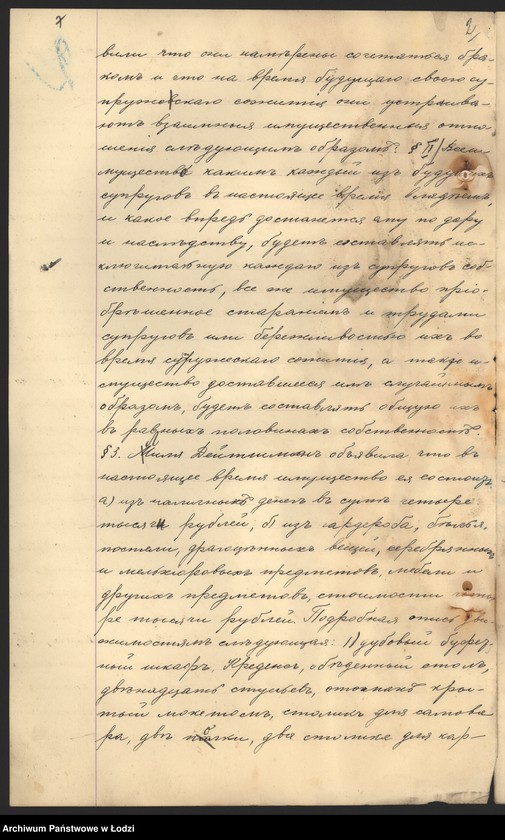 2
вили что они намѣрены сочетаться бра-
комъ и что на время будущаго своего су-
пружескаго сожитія они устраива-
ютъ взаимныя имущественныя отно-
шенія слѣдующимъ образомъ: § II/ Всѣмъ
имуществомъ какимъ каждый изъ будущихъ
супруговъ въ настоящее время владѣетъ,
и какое впредь достанется ему по дару
и наслѣдству, будетъ составлять ис-
ключительную каждаго изъ супруговъ соб-
ственность, все же имущество прі о-
брѣтенное стараніемъ и трудами
супруговъ или бережливостью ихъ во
время супружескаго сожитія, а также и-
мущество доставшееся имъ случайнымъ
образомъ, будетъ составлять общую ихъ
въ равныхъ половинахъ собственность.
§ 3. Дейтшманъ объявила, что въ
настоящее время имущество ея состоитъ:
а) изъ наличныхъ денегъ въ суммѣ четыре
тысячи рублей; б) изъ гардероба, бѣлья,
постели, драгоцѣнныхъ вещей, серебрянныхъ
и мельхіоровыхъ предметовъ, мебели и
другихъ предметовъ, стоимости четы-
ре тысячи рублей. Подробная опись дви-
жимостямъ слѣдующая: 1) дубовый буфет-
ный шкафъ, Креденсъ, обѣденный столъ,
двѣнадцать стульевъ, отоманъ кры-
тый мокетомъ, столикъ для самова-
ра, двѣ полки, два столика для кар-
Archiwum Państwowe w Łodzi